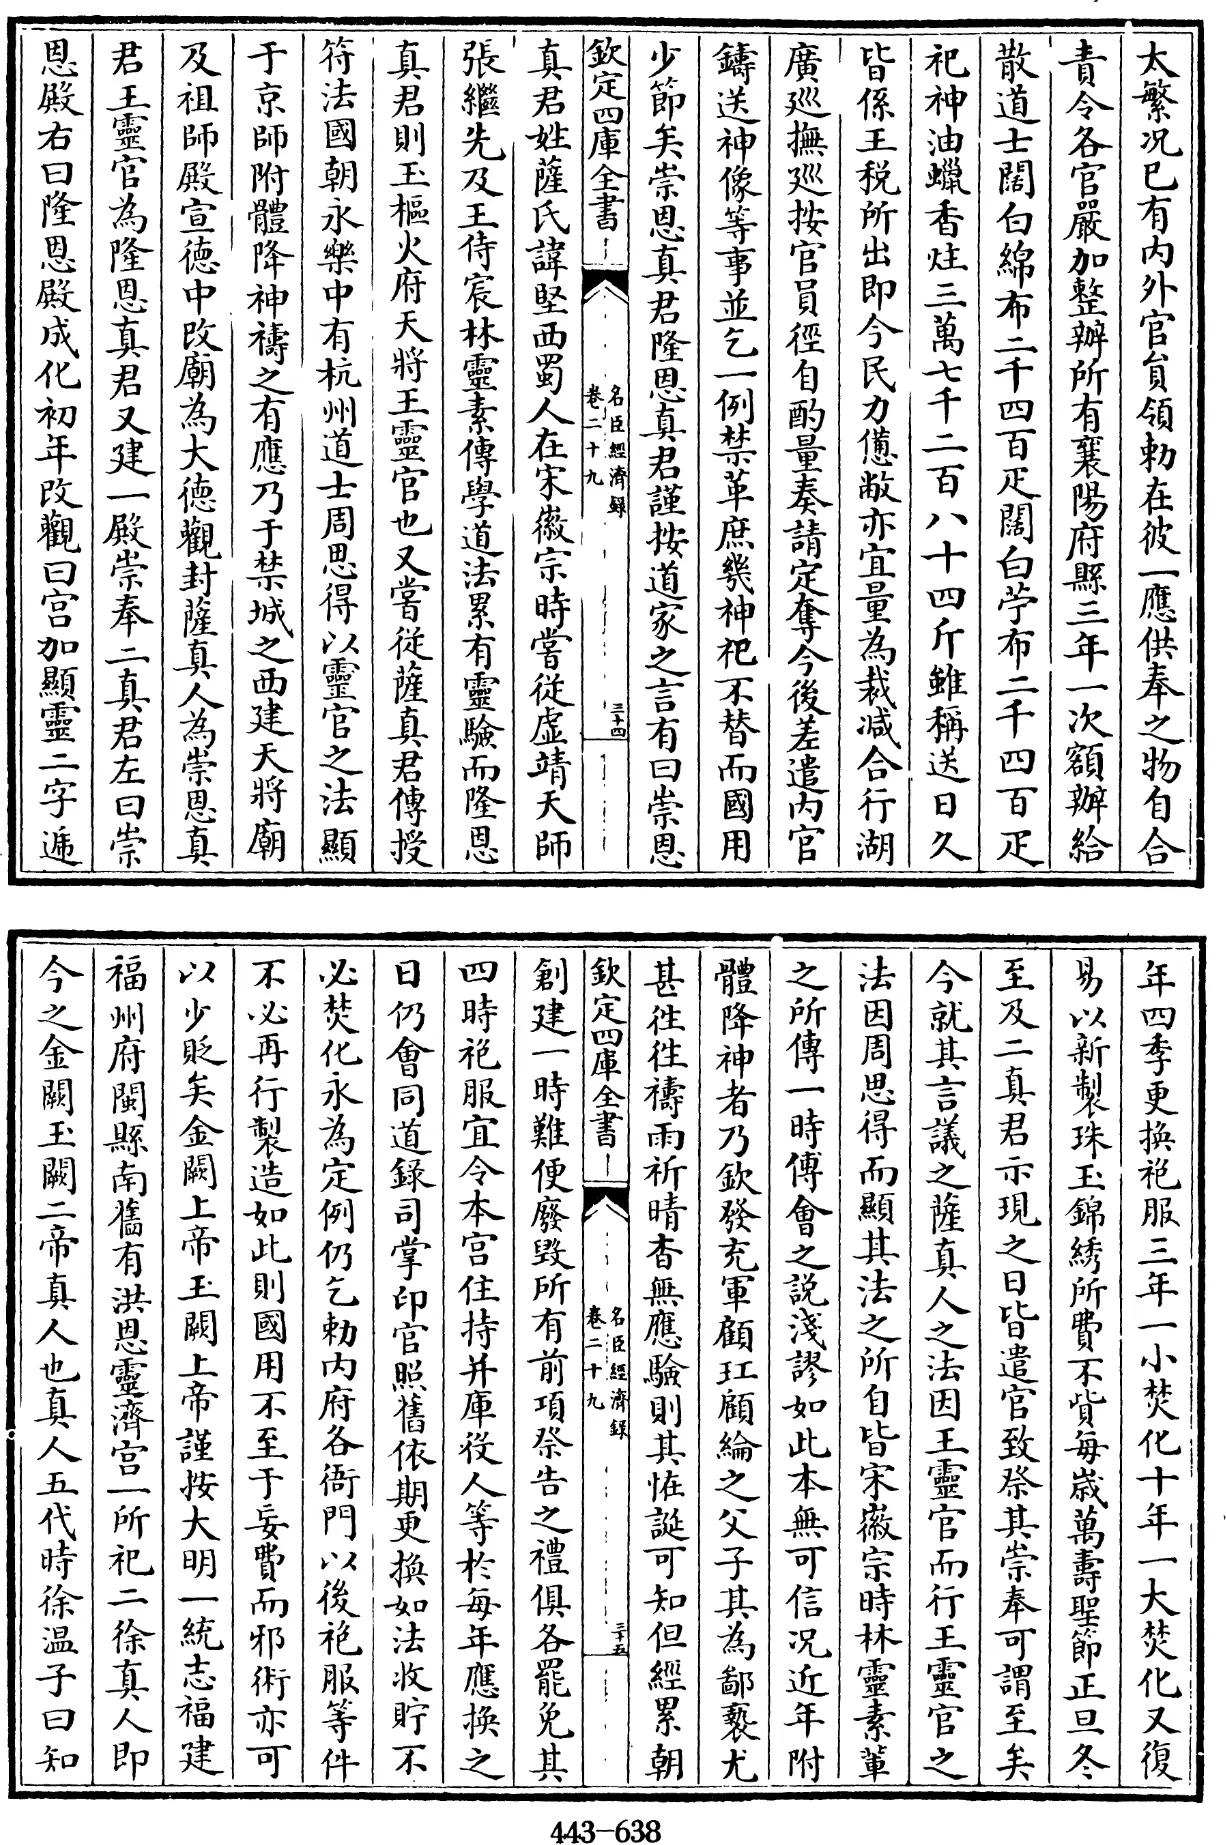 太繁况已有内外官員領勅在彼一應供奉之物自合
責令各官嚴加整辦所有襄陽府縣三年一次額辦給
散道士闊白綿布二千四百疋闊白苧布二千四百疋
祀神油蠟香炷三萬七千二百八十四斤雖稱送日久
皆係王税所出即今民力憊敝亦宜量為裁减合行湖
廣廵撫廵按官員徑自酌量奏請定奪今後差遣内官
鑄送神像等事並乞一例禁革庶幾神祀不替而國用
少節矣崇恩真君隆恩真君謹按道家之言有曰崇恩
欽定四庫全書
名臣經濟録
卷二十九
三十四
真君姓薩氏諱堅西蜀人在宋徽宗時嘗從虚靖天師
張繼先及王侍宸林靈素傳學道法累有靈驗而隆恩
真君則玉樞火府天將王靈官也又嘗從薩真君傳授
符法國朝永樂中有杭州道士周思得以靈官之法顯
于京師附體降神禱之有應乃于禁城之西建天將廟
及祖師殿宣徳中改廟為大徳觀封薩真人為崇恩真
君王靈官為隆恩真君又建一殿崇奉二真君左曰崇
恩殿右曰隆恩殿成化初年改觀曰宫加顯靈二字遞
年四季更換袍服三年一小焚化十年一大焚化又復
易以新製珠玉錦綉所費不貲每嵗萬壽聖節正旦冬
至及二真君示現之日皆遣官致祭其崇奉可謂至矣
今就其言議之薩真人之法因王靈官而行王靈官之
法因周思得而顯其法之所自皆宋徽宗時林靈素軰
之所傳一時傅會之説淺謬如此本無可信况近年附
體降神者乃欽發充軍顧玒顧綸之父子其為鄙褻尤
甚徃徃禱雨祈晴杳無應驗則其恠誕可知但經累朝
欽定四庫全書
名臣經濟録
卷二十九
三十五
創建一時難便廢毁所有前項祭告之禮俱各罷免其
四時袍服宜令本宫住持并庫役人等於每年應換之
日仍會同道録司掌印官照舊依期更換如法收貯不
必焚化永為定例仍乞勅内府各衙門以後袍服等件
不必再行製造如此則國用不至于妄費而邪術亦可
以少貶矣金闕上帝玉闕上帝謹按大明一統志福建
福州府閩縣南舊有洪恩靈濟宫一所祀二徐真人即
今之金闕玉闕二帝真人也真人五代時徐温子曰知
443-638